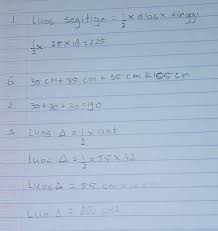 1. Luas segitiga = 1/2 x alas x tinggi
1/2 x 25 x 18 = 225
6. 35 cm + 35 cm + 35 cm = 105 cm
2. 30 + 30 + 30 = 90
3. Luas Δ = 1/2 x a x t
Luas Δ = 1/2 x 55 x 32
Luas Δ = 55 cm x
Luas Δ = cm2